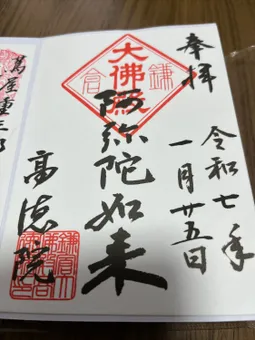 奉拝
令和七年
一月廿五日
大佛殿
鎌倉
阿弥陀如来
高徳院